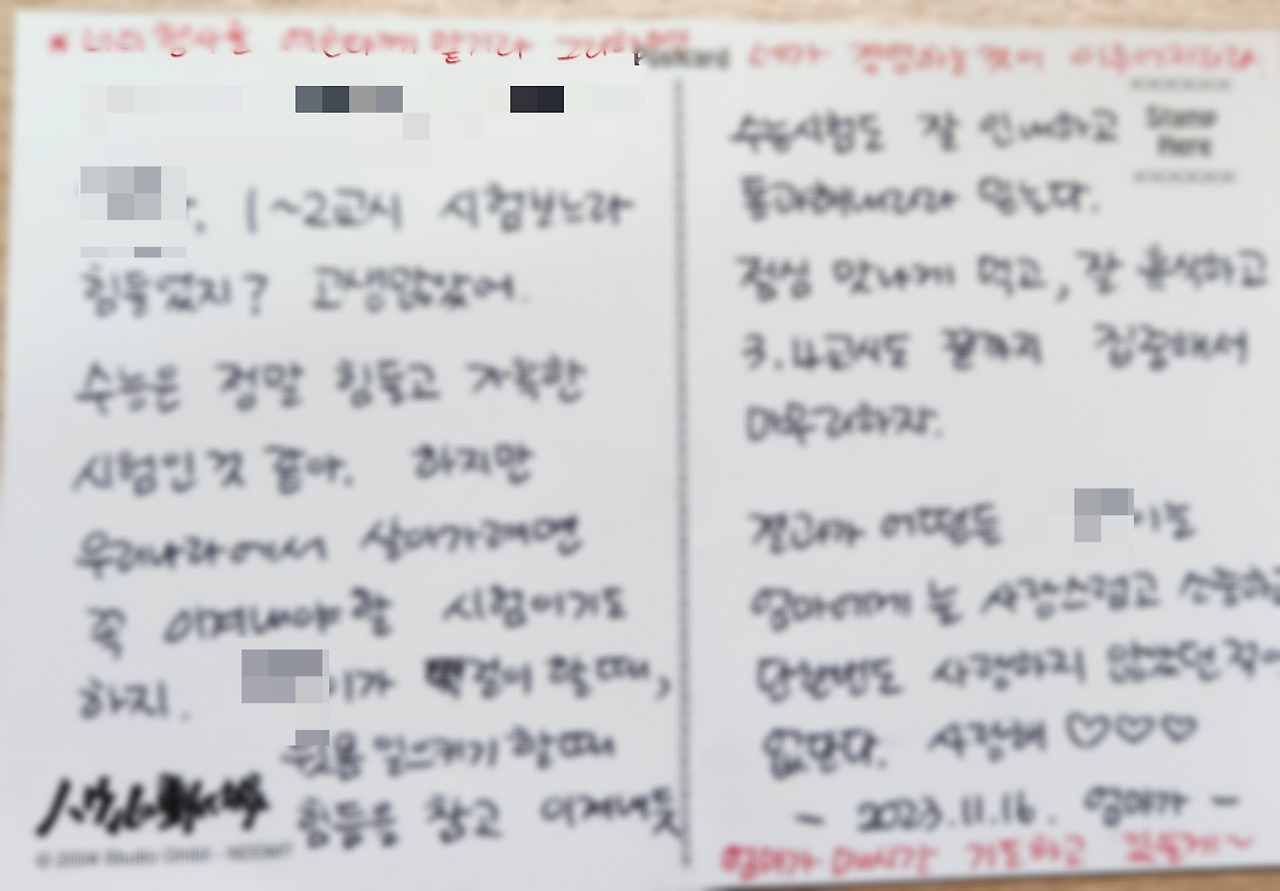 * 너의 행사를 여호와께 맡기라 그리하면
Postcard
네가 경영하는 것이 이루어지리라.
Stamp
Here
, 1~2교시 시험보느라
힘들었지? 고생많았어.
수능은 정말 힘들고 가혹한
시험인것 같아. 하지만
우리나라에서 살아가려면
꼭 이겨내야 할 시험이기도
하지. 이가 턱걸이 할때,
윗몸일으키기 할때
힘듦을 참고 이겨내듯
© 2004 Studio Ghibli - NDDMT
수능시험도 잘 인내하고
통과해내리라 믿는다.
점심 맛나게 먹고, 잘 휴식하고
3.4교시도 끝까지 집중해서
마무리하자.
결과가 어떻든 이는
엄마에게 늘 사랑스럽고 소중하고
단한번도 사랑하지 않았던 적이
없단다. 사랑해 ♡♡♡
- 2023.11.16. 엄마가 -
엄마가 매시간 기도하고 있을게~